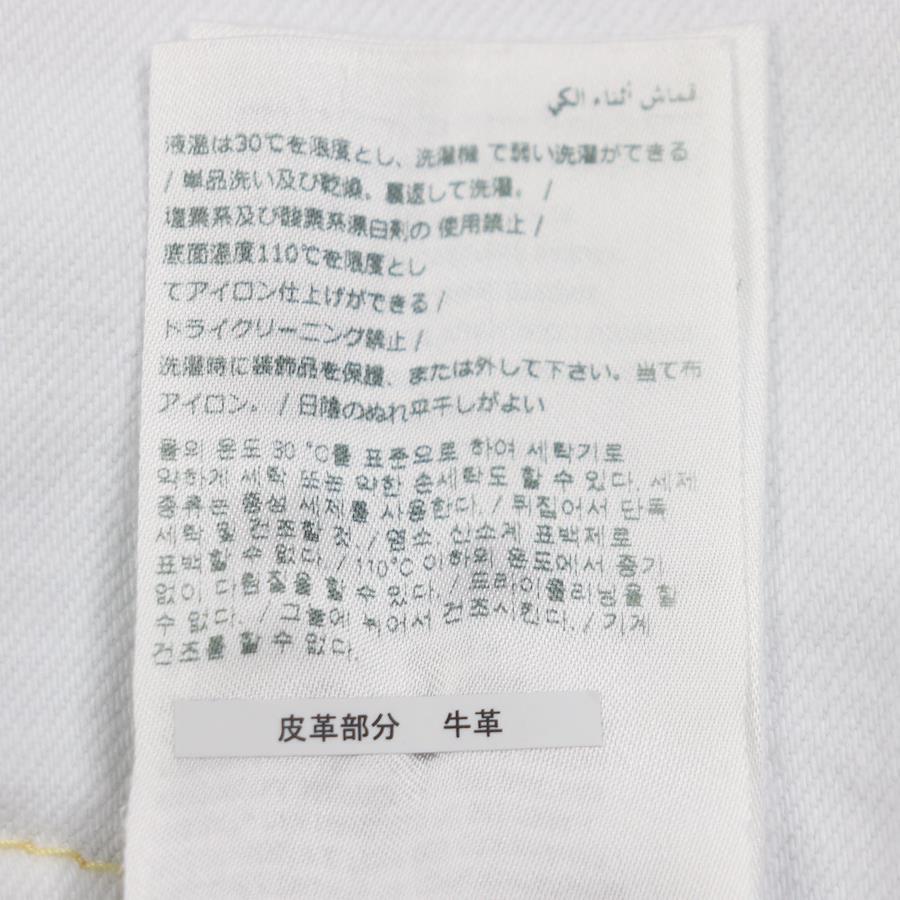 قماش أثناء الكي
液温は30℃を限度とし、洗濯機 で弱い洗濯ができる
/ 単品洗い及び乾燥。裏返して洗濯。 /
塩素系及び酸素系漂白剤の 使用禁止 /
底面温度110℃を限度とし
てアイロン仕上げができる /
ドライクリーニング禁止 /
洗濯時に装飾品を保護、または外して下さい。当て布
アイロン。 / 日陰のぬれ平干しがよい
물의 온도 30 °C를 표준으로 하여 세탁기로
약하게 세탁 또는 약한 손세탁도 할 수 있다. 세제
종류는 중성 세제를 사용한다. / 뒤집어서 단독
세탁 및 건조할 것 / 염소 산소계 표백제로
표백할 수 없다. / 110°C 이하의 온도에서 증기
없이 다림질을 할 수 있다. / 드라이클리닝을 할
수 없다. / 그늘에 뉘어서 건조시킨다. / 기계
건조를 할 수 없다.
皮革部分 牛革